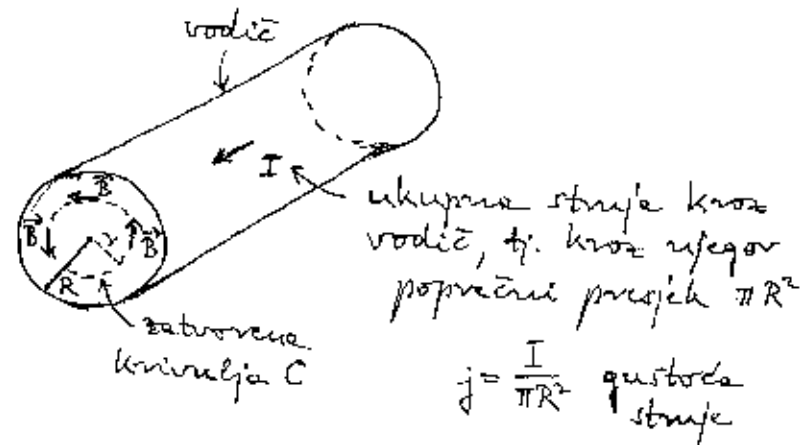 vodič
I
B⃗
B⃗
B⃗
r
R
ukupna struja kroz
vodič, tj. kroz njegov
poprečni presjek πR²
zatvorena
krivulja C
j = I / πR² gustoća
struje